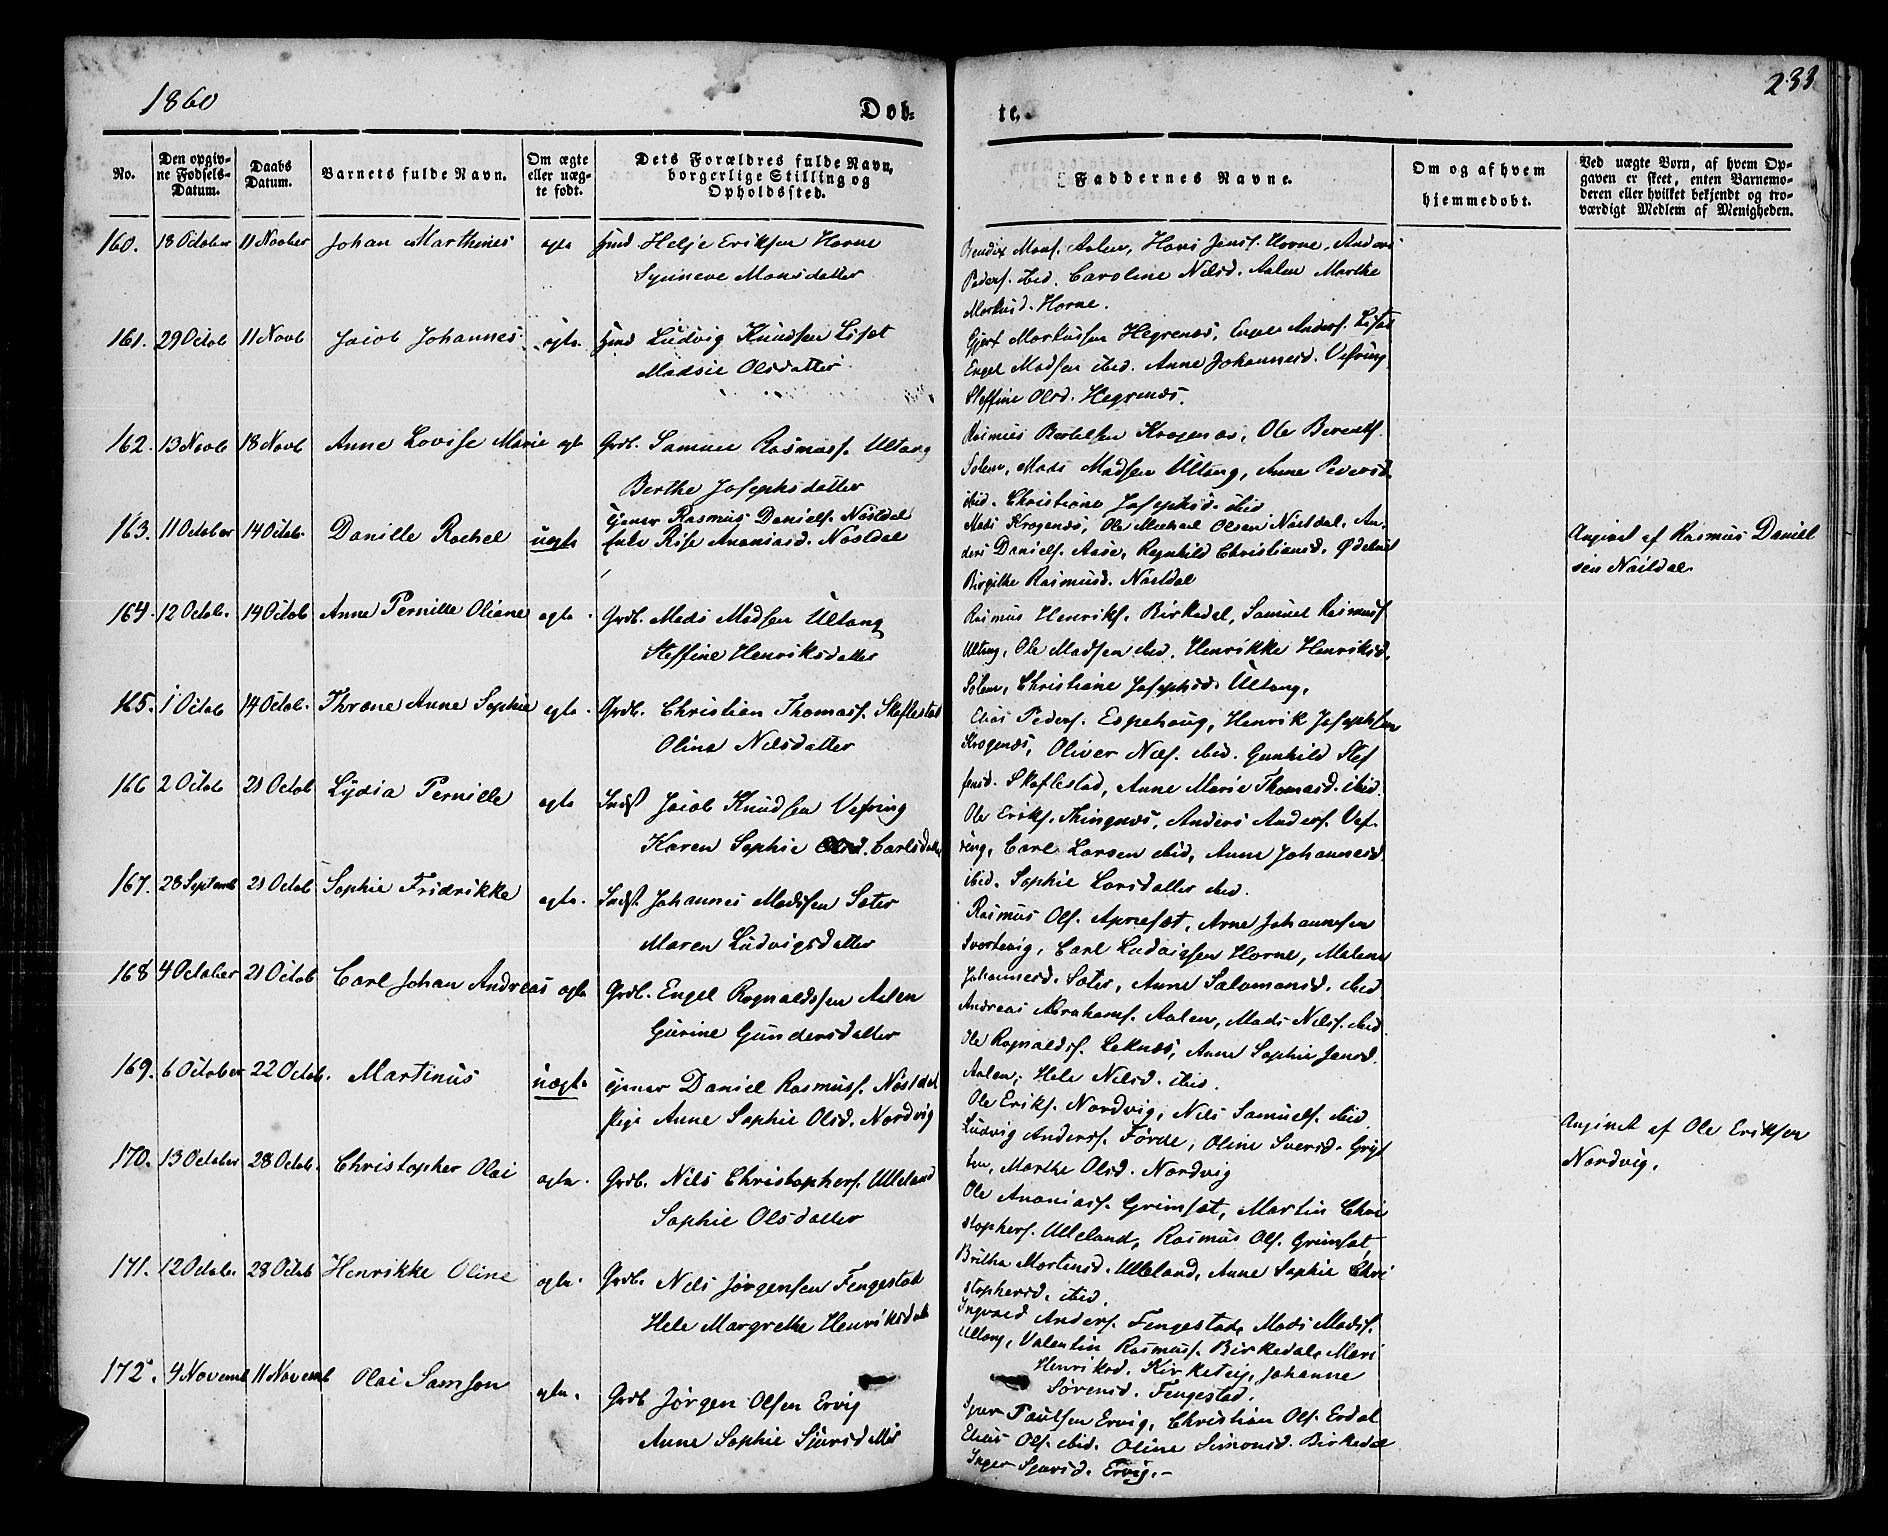 1860
Døb-
te.
233
No.
Den opgiv-
ne Fødsels-
Datum.
Daabs
Datum.
Barnets fulde Navn.
Om ægte
eller uæg-
te født.
Dets Forældres fulde Navn,
borgerlige Stilling og
Opholdssted.
Faddernes Navne.
Om og af hvem
hjemmedøbt.
Ved uægte Børn, af hvem Op-
gaven er skeet, enten Barnemo-
deren eller hvilket bekjendt og tro-
værdigt Medlem af Menigheden.
160. 18 October 11 Novber Johan Marthines ægte Helje Eriksen Horne
Synneve Monsdatter
Bendix Monss. Aalen, Hans Jenss. Horne, Anders
Peders. ibid. Caroline Nilsd. Aalen Marthe
Markusd. Horne.
161. 29 Octob 11 Novb Jacob Johannes ægte Ludvig Knudsen Liset
Madsie Olsdatter
Gjert Markussen Hegrenæs, Engel Anders. Liset
Engel Madsen ibid. Anne Johannesd. Vefring
Steffine Olsd. Hegrenæs.
162. 13 Novb 18 Novb Anne Lovise Marie ægte Grdb. Samuel Rasmuss. Ultang
Berthe Josephsdatter
Rasmus Bertelsen Krogenæs, Ole Berents.
Solem, Mads Madsen Ultang, Anne Pedersd.
ibid. Christiane Josephsd. ibid
163. 11 October 14 Octob. Danille Rachel uægte Tjener Rasmus Daniels. Nøstdal
Enke Rise Ananiasd. Nøstdal
Mads Krogenæs, Ole Michael Olsen Nøstdal, An-
ders Daniels. Aase, Ragnhild Christiansd. Ødetvet
Birgithe Rasmusd. Nøstdal
Angivet af Rasmus Daniel
sen Nøstdal.
164. 12 Octob. 14 Octob Anne Pernille Oliane ægte. Grdb. Mads Madsen Ultang
Steffine Henriksdatter
Rasmus Henriks. Birkedal, Samuel Rasmuss
Ultang, Ole Madsen ibid. Henrikke Henriksd.
Solem, Christiane Josephsd. Ultang.
165. 1 Octob 14 Octob. Throne Anne Sophie ægte. Grdb. Christian Thomass. Skaflestad
Oline Nilsdatter
Elias Peders. Espehoug, Henrik Josephsen
Krogenæs, Oliver Nils. ibid. Gunhild Stef
fensd. Skaflestad, Anne Marie Thomasd. ibid.
166 2 Octob 21 Octob Lydia Pernille ægte Indst Jacob Knudsen Vefring
Karen Sophie Olsd. Carlsdatter
Ole Eriks. Thingnæs, Anders Anders. Vef-
ring, Carl Larsen ibid, Anne Johannesd.
ibid. Sophie Larsdatter ibid.
167. 28 Septemb 21 Octob Sophie Fridrikke ægte. Indst Johannes Madssen Sæter
Maren Ludvigsdatter
Rasmus Ols. Apneset, Arne Johannesen
Svortevig, Carl Ludvigsen Horne, Malene
Johannesd. Sæter, Anne Salomonsd. ibid.
168 4 October 21 Octob Carl Johan Andreas ægte Grdb. Engel Ragnaldssen Aalen
Gurine Gundersdatter
Andreas Abrahams. Aalen, Mads Nils. ibid.
Ole Ragnalds. Leknæs, Anne Sophie Jensd.
Aalen, Hele Nilsd. ibid.
169. 6 October 22 Octob. Martinus uægte Tjener Daniel Rasmuss. Nøstdal
Pige Anne Sophie Olsd. Nordvig
Ole Eriks. Nordvig, Nils Samuels. ibid.
Ludvig Anders. Førde, Oline Sversd. Gryt
ten, Marthe Olsd. Nordvig
Angivet af Ole Eriksen
Nordvig.
170. 13 October 28 Octob. Christopher Olai ægte. Grdb. Nils Christophers. Ulleland
Sophie Olsdatter
Ole Ananiass. Grimset, Martin Chri
stophers. Ulleland, Rasmus Ols. Grimset,
Britha Mortensd. Ulleland, Anne Sophie Chri
stophersd. ibid.
171. 12 Octob. 28 Octob Henrikke Oline ægte. Grdb. Nils Jørgensen Fengestad
Hele Margrethe Henriksdatter
Ingvald Anders. Fengestad, Mads Mads.
Ultang, Valentin Rasmuss. Birkedal, Mari
Henriksd. Kirketeig, Johanne
Sørensd. Fengestad.
172. 4 Novemb 11 Novemb Olai Samson ægte. Grdb Jørgen Olsen Ervig
Anne Sophie Sjursdatter
Sjur Paulsen Ervig, Christian Ols. Erdal
Elias Ols. ibid. Oline Simonsd. Birkedal
Inger Sjursd. Ervig.-